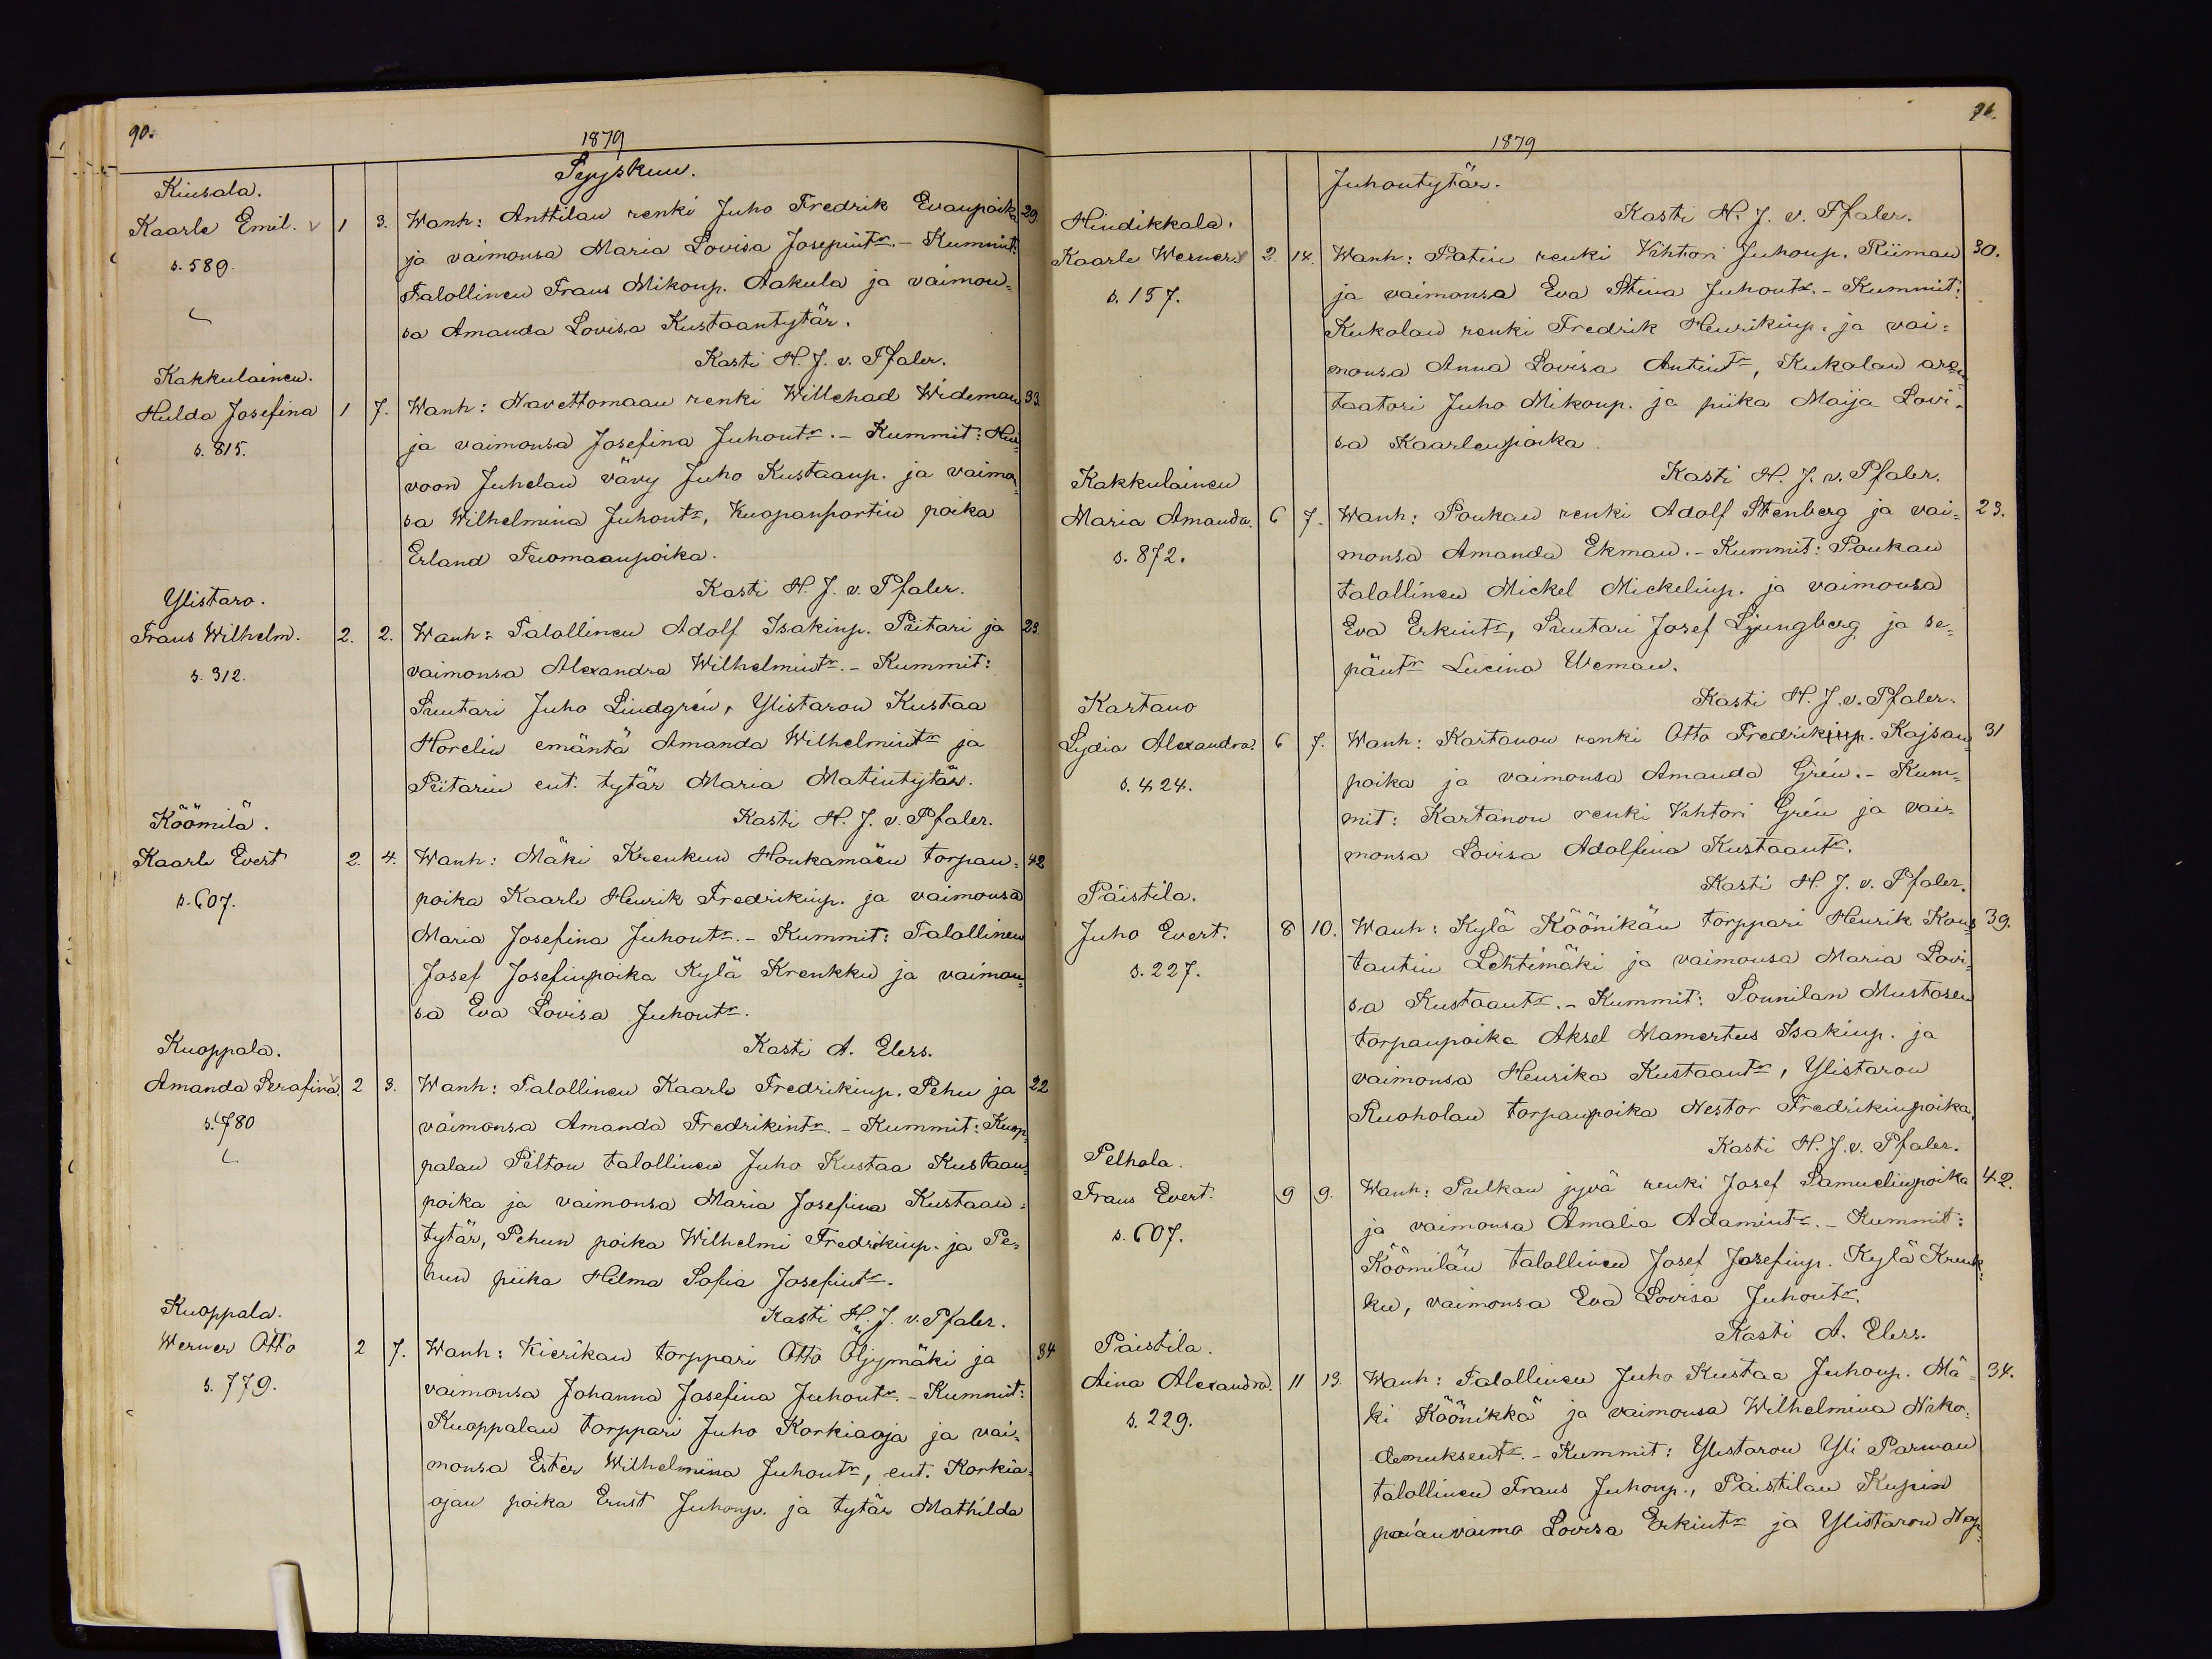 90.
1879
Syyskuu.
Kiusala.
Kaarle Emil. v 1 3. Wanh: Anttilan renki Juho Fredrik Evanpoika 29.
s. 589. ja vaimonsa Maria Lovisa Josepintr. - Kummit:
Talollinen Frans Mikonp. Aakula ja vaimon=
sa Amanda Lovisa Kustaantytär.
Kasti H. J. v. Pfaler.
Kakkulainen.
Hulda Josefina 1 7. Wanh: Navettomaan renki Willehad Wideman 33.
s. 815. ja vaimonsa Josefina Juhontr. - Kummit: Hui
voon Juhelan vävy Juho Kustaanp. ja vaimon=
sa Wilhelmina Juhontr, Kuopanportin poika
Erland Tuomaanpoika.
Kasti H. J. v. Pfaler.
Ylistaro.
Frans Wilhelm. 2. 2. Wanh: Talollinen Adolf Isakinp. Piitari ja 23.
s. 312. vaimonsa Alexandra Wilhelmintr. - Kummit:
Suutari Juho Lindgrén, Ylistaron Kustaa
Horelin emäntä Amanda Wilhelmintr ja
Piitarin ent. tytär Maria Matintytär.
Kasti H. J. v. Pfaler.
Köömilä.
Kaarle Evert 2. 4. Wanh: Mäki Krenkun Honkamäen torpan= 42
s. 607. poika Kaarle Henrik Fredrikinp. ja vaimonsa
Maria Josefina Juhontr. - Kummit: Talollinen
Josef Josefinpoika Kylä Krenkku ja vaimon=
sa Eva Lovisa Juhontr.
Kasti A. Elers.
Kuoppala.
Amanda Serafina. v 2 3. Wanh: Talollinen Kaarle Fredrikinp. Pehu ja 22
s. 780 vaimonsa Amanda Fredrikintr. - Kummit: Kuop=
palan Pilton talollinen Juho Kustaa Kustaan=
poika ja vaimonsa Maria Josefina Kustaan=
tytär, Pehun poika Wilhelmi Fredrikinp. ja Pe=
hun piika Hilma Sofia Josefintr.
Kasti H. J. v. Pfaler.
Kuoppala.
Werner Otto 2 7. Wanh: Kierikan torppari Otto Öljymäki ja 34
s. 779. vaimonsa Johanna Josefina Juhontr. - Kummit:
Kuoppalan torppari Juho Korkiaoja ja vai=
monsa Ester Wilhelmiina Juhontr, ent. Korkia=
ojan poika Ernst Juhonp. ja tytär Mathilda
91.
1879
Juhontytär.
Kasti H. J. v. Pfaler.
Hindikkala.
Kaarle Werner. v 2. 14. Wanh: Patin renki Vihtori Juhonp. Riiman 30.
s. 157. ja vaimonsa Eva Stina Juhontr. - Kummit:
Kukolan renki Fredrik Henrikinp. ja vai=
monsa Anna Lovisa Antintr, Kukolan aren=
taatori Juho Mikonp. ja piika Maija Lovi=
sa Kaarlenpoika.
Kasti H. J. v. Pfaler.
Kakkulainen
Maria Amanda. 6 7. Wanh: Poukan renki Adolf Stenberg ja vai= 23.
s. 872. monsa Amanda Ekman. - Kummit: Poukan
talollinen Mickel Mickelinp. ja vaimonsa
Eva Erkintr, Suutari Josef Ljungberg ja se=
päntr Lucina Weman.
Kasti H. J. v. Pfaler.
Kartano
Lydia Alexandra. 6 7. Wanh: Kartanon renki Otto Fredrikinp. Kajsan= 31
s. 424. poika ja vaimonsa Amanda Grén. - Kum=
mit: Kartanon renki Vihtori Grén ja vai=
monsa Lovisa Adolfina Kustaantr.
Kasti H. J. v. Pfaler.
Päistilä.
Juho Evert. 8 10. Wanh: Kylä Köönikän torppari Henrik Kons= 39.
s. 227. tantin Lehtimäki ja vaimonsa Maria Lovi=
sa Kustaantr. - Kummit: Sonnilan Mustosen
torpanpoika Aksel Mamertus Isakinp. ja
vaimonsa Henrika Kustaantr, Ylistaron
Ruoholan torpanpoika Nestor Fredrikinpoika.
Kasti H. J. v. Pfaler.
Pelhola.
Frans Evert. 9 9. Wanh: Pulkan jyvä renki Josef Samuelinpoika 42.
s. 607. ja vaimonsa Amalia Adamintr. - Kummit:
Köömilän talollinen Josef Josefinp. Kylä Krenk=
ku, vaimonsa Eva Lovisa Juhontr.
Kasti A. Elers.
Päistilä.
Aina Alexandra. 11 13. Wanh: Talollinen Juho Kustaa Juhonp. Mä= 34.
s. 229. ki Köönikkä ja vaimonsa Wilhelmina Niko=
demuksentr. - Kummit: Ylistaron Yli Parwan
talollinen Frans Juhonp., Päistilän Kupin
pojanvaimo Lovisa Erkintr ja Ylistaron Nop=